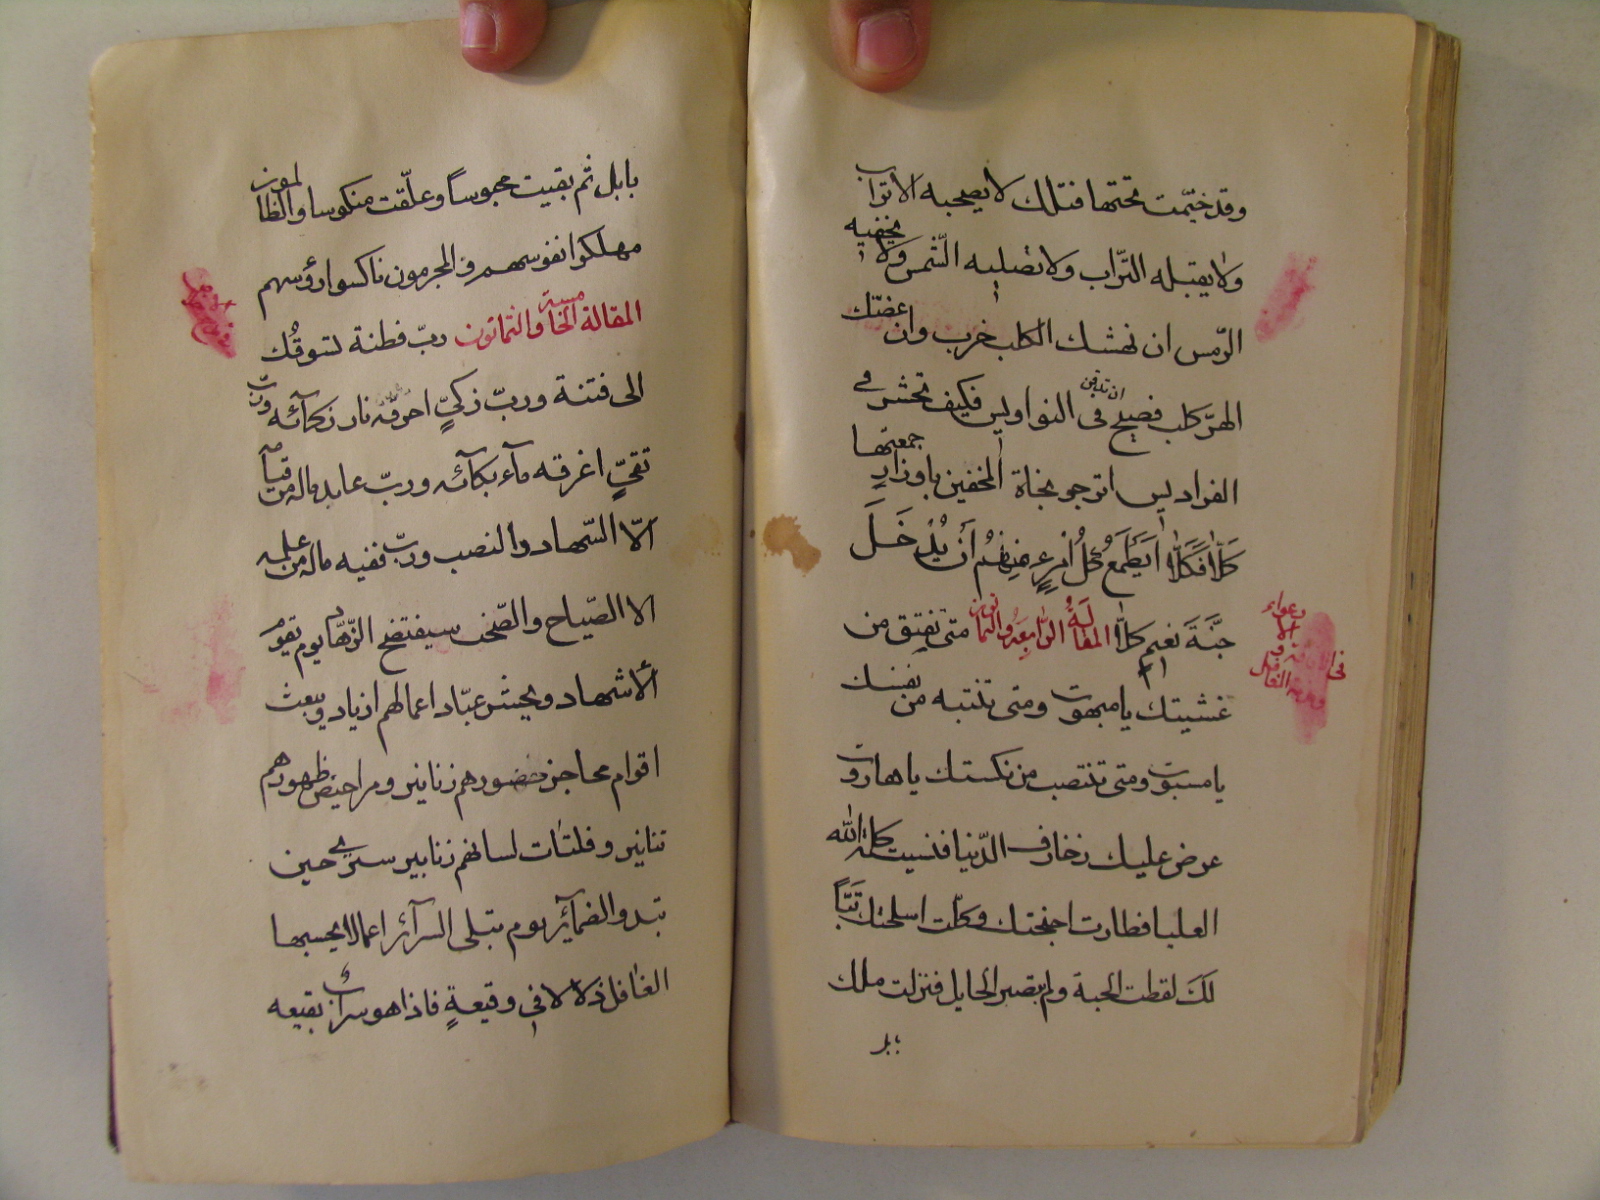 وقد خيّمت تحتها فتلك لا يصحبه الا تراب
ولا يقبله التراب ولا تصليه الشمس ولا يخفيه
الرّمس ان نهشك الكلب خرب وان عضّك
الهرّ كلب فصيح ان تدفن في النواويس فكيف تحشر في
الفراديس اترجو نجاة المخفين باوزار جمعتها
كَلَّا فَكَلَّا اَيَطْمَعُ كُلُّ امْرِءٍ مِنْهُمْ اَنْ يُدْخَلَ
جَنَّةَ نَعِيمٍ كَلَّا المقالةُ الرَّابِعَةُ والثمانون متى تفيق من
غشيتك يا مبهوت ومتى تنتبه من نفسك
يا مسبوت ومتى تنتصب من نكستك يا هاروت
عرض عليك زخارف الدّنيا فنسيت كلمة الله
العليا فطارت اجنحتك وكلّت اسلحتك تَبّاً
لَكَ لقطت الحبة ولم تبصر الحابل فنزلت ملك
بابل
بابل ثم بقيت محبوساً وعلّقت منكوسا والظالمون
مهلكوا نفوسهم والمجرمون ناكسوا رؤسهم
المقالة الخامسة والثمانون ربّ فطنة تسوقُك
الى فتنة وربّ زكيٍّ احرقه نار زكآئه وربّ
تقيٍّ اغرقه مآء بكآئه وربّ عابد ماله من قيامه
الّا السّهاد والنصب وربّ فقيه ماله من علمه
الا الصّياح والصّخب سيفتضح الزّهّاد يوم يقوم
الاشهاد ويحشر عبّاد اعمالهم ازياد ويبعث
اقوام محاجز خصورهم زنانير ومراحيض ظهورهم
تنانير وفلتات لسانهم زنابير سترى حين
تبدو الضمآئر يوم تبلى السرآئر اعمالا يحسبها
الغافل ذلالا في وقيعةٍ فاذا هو سرابٌ بقيعه